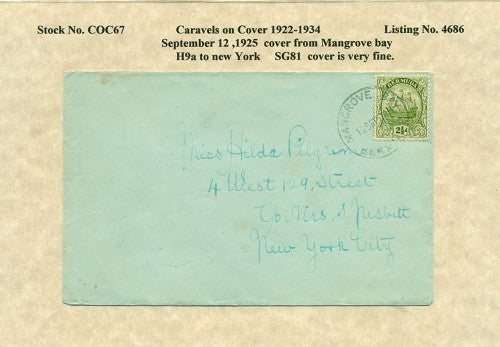 Stock No. COC67 Caravels on Cover 1922-1934 Listing No. 4686
September 12 ,1925 cover from Mangrove bay
H9a to new York SG81 cover is very fine.
BERMUDA
2½d
MANGROVE
Miss Hilda Pilgrim
4 West 129, Street
C/o Mrs S. Nesbitt
New York City